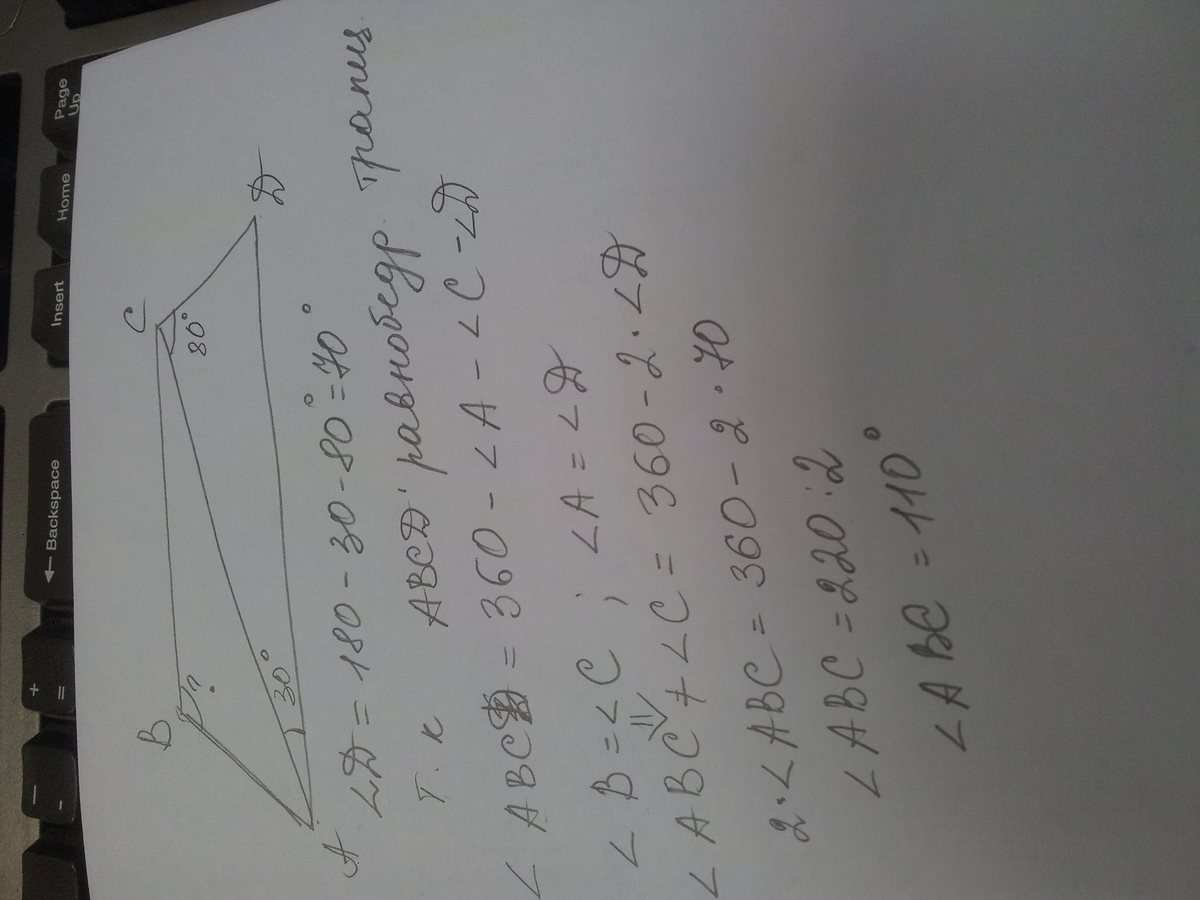 B
C
?
80°
30°
A
D
∠D = 180 - 30 - 80° = 70°
Т. к ABCD равнобедр. трапец.
∠ABC = 360 - ∠A - ∠C - ∠D
∠B = ∠C ; ∠A = ∠D
∠ABC + ∠C = 360 - 2 · ∠D
2 · ∠ABC = 360 - 2 · 70
∠ABC = 220 : 2
∠ABC = 110°
+
=
-
← Backspace
Insert
Home
Page
Up